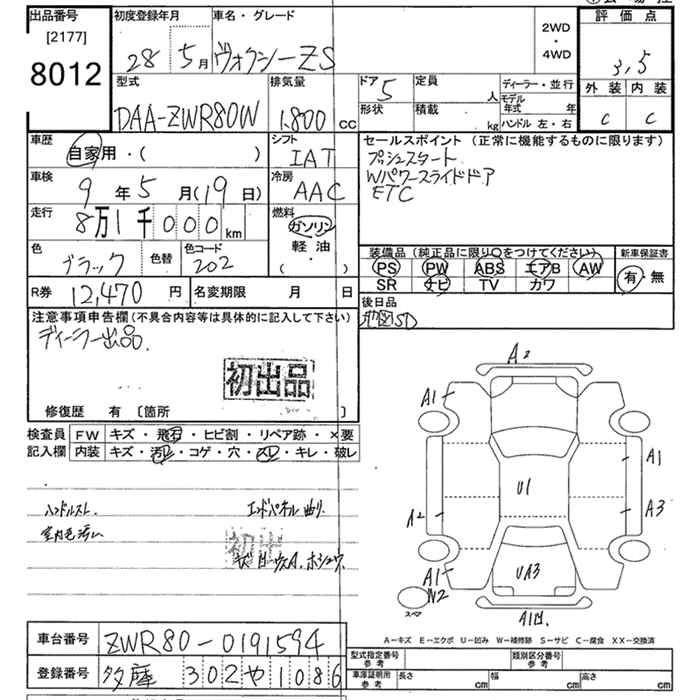 出品番号
[2177]
8012
初度登録年月
28 5月
車名・グレード
ヴォクシーZS
2WD
・
4WD
評価点
3,5
外装 内装
C C
型式
DAA-ZWR80W
排気量
1,800 CC
ドア 5
形状
定員 人
積載 kg
ディーラー・並行
モデル年式 年
ハンドル 左・右
車歴
自家用・( )
シフト
IAT
車検
9年5月(19日)
冷房
AAC
走行
8万1千000km
燃料
ガソリン
軽油
( )
色
ブラック
色替
色コード
202
R券 12,470円
名変期限 月 日
セールスポイント (正常に機能するものに限ります)
プッシュスタート
Wパワースライドドア
ETC
装備品 (純正品に限り○をつけてください)
PS PW ABS エアB AW
SR ナビ TV カワ
新車保証書
有・無
後日品
地図SD
注意事項申告欄(不具合内容等は具体的に記入して下さい)
ディーラー出品.
初出品
修復歴 有 [箇所 ]
検査員記入欄
FW キズ・飛石・ヒビ割・リペア跡・×要
内装 キズ・汚レ・コゲ・穴・スレ・キレ・破レ
ハンドルスレ
室内毛汚レ
エンドパネル曲り.
A2
A1
A1
U1
A2
A3
A1
W2
UA3
スペア
A1凹.
A−キズ E−エクボ U−凹み W−補修跡 S−サビ C−腐食 XX−交換済
車台番号 ZWR80-0191594
登録番号 多摩 302 や 1086
型式指定番号 参考
類別区分番号 参考
車庫証明用 参考
長さ cm
幅 cm
高さ cm